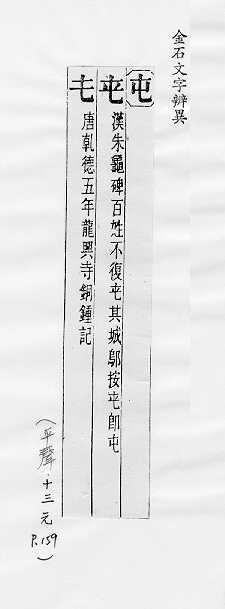 金石文字辨異
屯
𡉏漢朱龜碑百姓不復𡉏其城鄔按𡉏即屯
𡉏唐乹德五年龍興寺銅鍾記
(平聲·十三元 P.159)